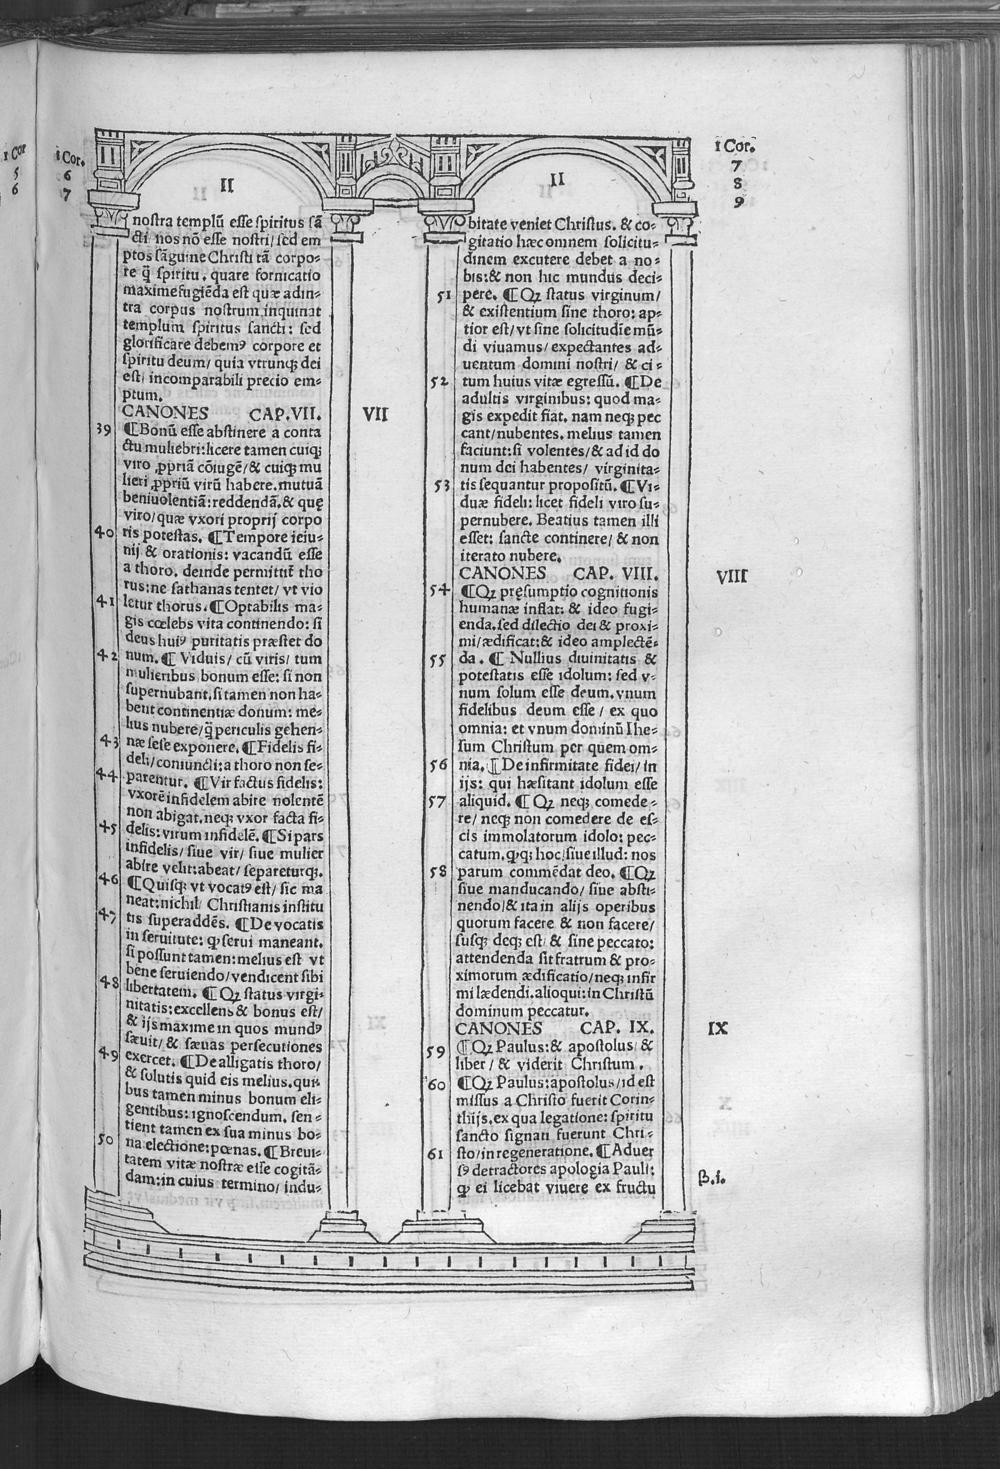 1 Cor
5
6
1 Cor.
6
7
II
II
1 Cor.
7
8
9
nostra templũ esse spiritus sã
cti nos nõ esse nostri/ sed em
ptos sãguine Christi tã corpo-
re q̃ spiritu. quare fornicatio
maxime fugiẽda est quæ adin-
tra corpus nostrum inquinat
templum spiritus sancti: sed
glorificare debemꝰ corpore et
spiritu deum/ quia vtrunqꝫ dei
est/ incomparabili precio em-
ptum.
CANONES CAP.VII.
VII
39 ¶Bonũ esse abstinere a conta
ctu muliebri: licere tamen cuiqꝫ
viro ꝓpriã cõiugẽ/ & cuiqꝫ mu
lieri ꝓpriũ virũ habere. mutuã
beniuolentiã: reddendã. & quę
viro/ quæ vxori proprij corpo
40 ris potestas. ¶Tempore ieiu-
nij & orationis: vacandũ esse
a thoro. deinde permittit̃ tho
rus: ne sathanas tentet/ vt vio
41 letur thorus. ¶Optabilis ma-
gis cœlebs vita continendo: si
deus huiꝰ puritatis præstet do
42 num. ¶ Viduis/ cũ viris/ tum
mulieribus bonum esse: si non
supernubant. si tamen non ha-
bent continentiæ donum: me-
lius nubere/ q̃ periculis gehen-
43 næ sese exponere. ¶Fidelis fi-
deli/ coniuncti: a thoro non se-
44 parentur. ¶Vir factus fidelis:
vxorẽ infidelem abire nolentẽ
non abigat. neqꝫ vxor facta fi-
45 delis: virum infidelẽ. ¶Si pars
infidelis/ siue vir/ siue mulier
abire velit: abeat/ separeturqꝫ.
46 ¶Quisqꝫ vt vocatꝰ est/ sic ma
neat: nichil/ Christianis institu
47 tis superaddẽs. ¶De vocatis
in seruitute: ꝙ serui maneant.
si possunt tamen: melius est vt
bene seruiendo/ vendicent sibi
48 libertatem. ¶Qꝫ status virgi-
nitatis: excellens & bonus est/
& ijs maxime in quos mundꝰ
sæuit/ & sæuas persecutiones
49 exercet. ¶De alligatis thoro/
& solutis quid eis melius. qui-
bus tamen minus bonum eli-
gentibus: ignoscendum. sen-
tient tamen ex sua minus bo-
50 na electione: pœnas. ¶Breui-
tatem vitæ nostræ esse cogitã-
dam: in cuius termino/ indu-
bitate veniet Christus. & co-
gitatio hæc omnem solicitu-
dinem excutere debet a no-
bis: & non huc mundus deci-
51 pere. ¶Qꝫ status virginum/
& existentium sine thoro: ap-
tior est/ vt sine solicitudĩe mũ-
di viuamus/ expectantes ad-
uentum domini nostri/ & ci-
52 tum huius vitæ egressũ. ¶De
adultis virginibus: quod ma-
gis expedit fiat. nam neqꝫ pec
cant/ nubentes. melius tamen
faciunt: si volentes/ & ad id do
num dei habentes/ virginita-
53 tis sequantur propositũ. ¶Vi-
duæ fideli: licet fideli viro su-
pernubere. Beatius tamen illi
esset: sancte continere/ & non
iterato nubere.
CANONES CAP. VIII.
VIII
54 ¶Qꝫ pręsumptio cognitionis
humanæ inflat: & ideo fugi-
enda. sed dilectio dei & proxi-
mi/ ædificat: & ideo amplectẽ-
55 da. ¶ Nullius diuinitatis &
potestatis esse idolum: sed v-
num solum esse deum. vnum
fidelibus deum esse/ ex quo
omnia: et vnum dominũ Ihe-
sum Christum per quem om-
56 nia. ¶De infirmitate fidei/ in
ijs: qui hæsitant idolum esse
57 aliquid. ¶ Qꝫ neqꝫ comede-
re/ neqꝫ non comedere de es-
cis immolatorum idolo: pec-
catum. ꝙqꝫ hoc/ siue illud: nos
58 parum commẽdat deo. ¶Qꝫ
siue manducando/ siue absti-
nendo/ & ita in alijs operibus
quorum facere & non facere/
susqꝫ deqꝫ est/ & sine peccato:
attendenda sit fratrum & pro-
ximorum ædificatio/ neqꝫ infir
mi lædendi. alioqui: in Christũ
dominum peccatur.
CANONES CAP. IX.
IX
59 ¶Qꝫ Paulus: & apostolus/ &
liber/ & viderit Christum.
60 ¶Qꝫ Paulus: apostolus/ id est
missus a Christo fuerit Corin-
thijs. ex qua legatione: spiritu
sancto signati fuerunt Chri-
61 sto/ in regeneratione. ¶Aduer
sꝰ detractores apologia Pauli:
ꝙ ei licebat viuere ex fructu
β.i.